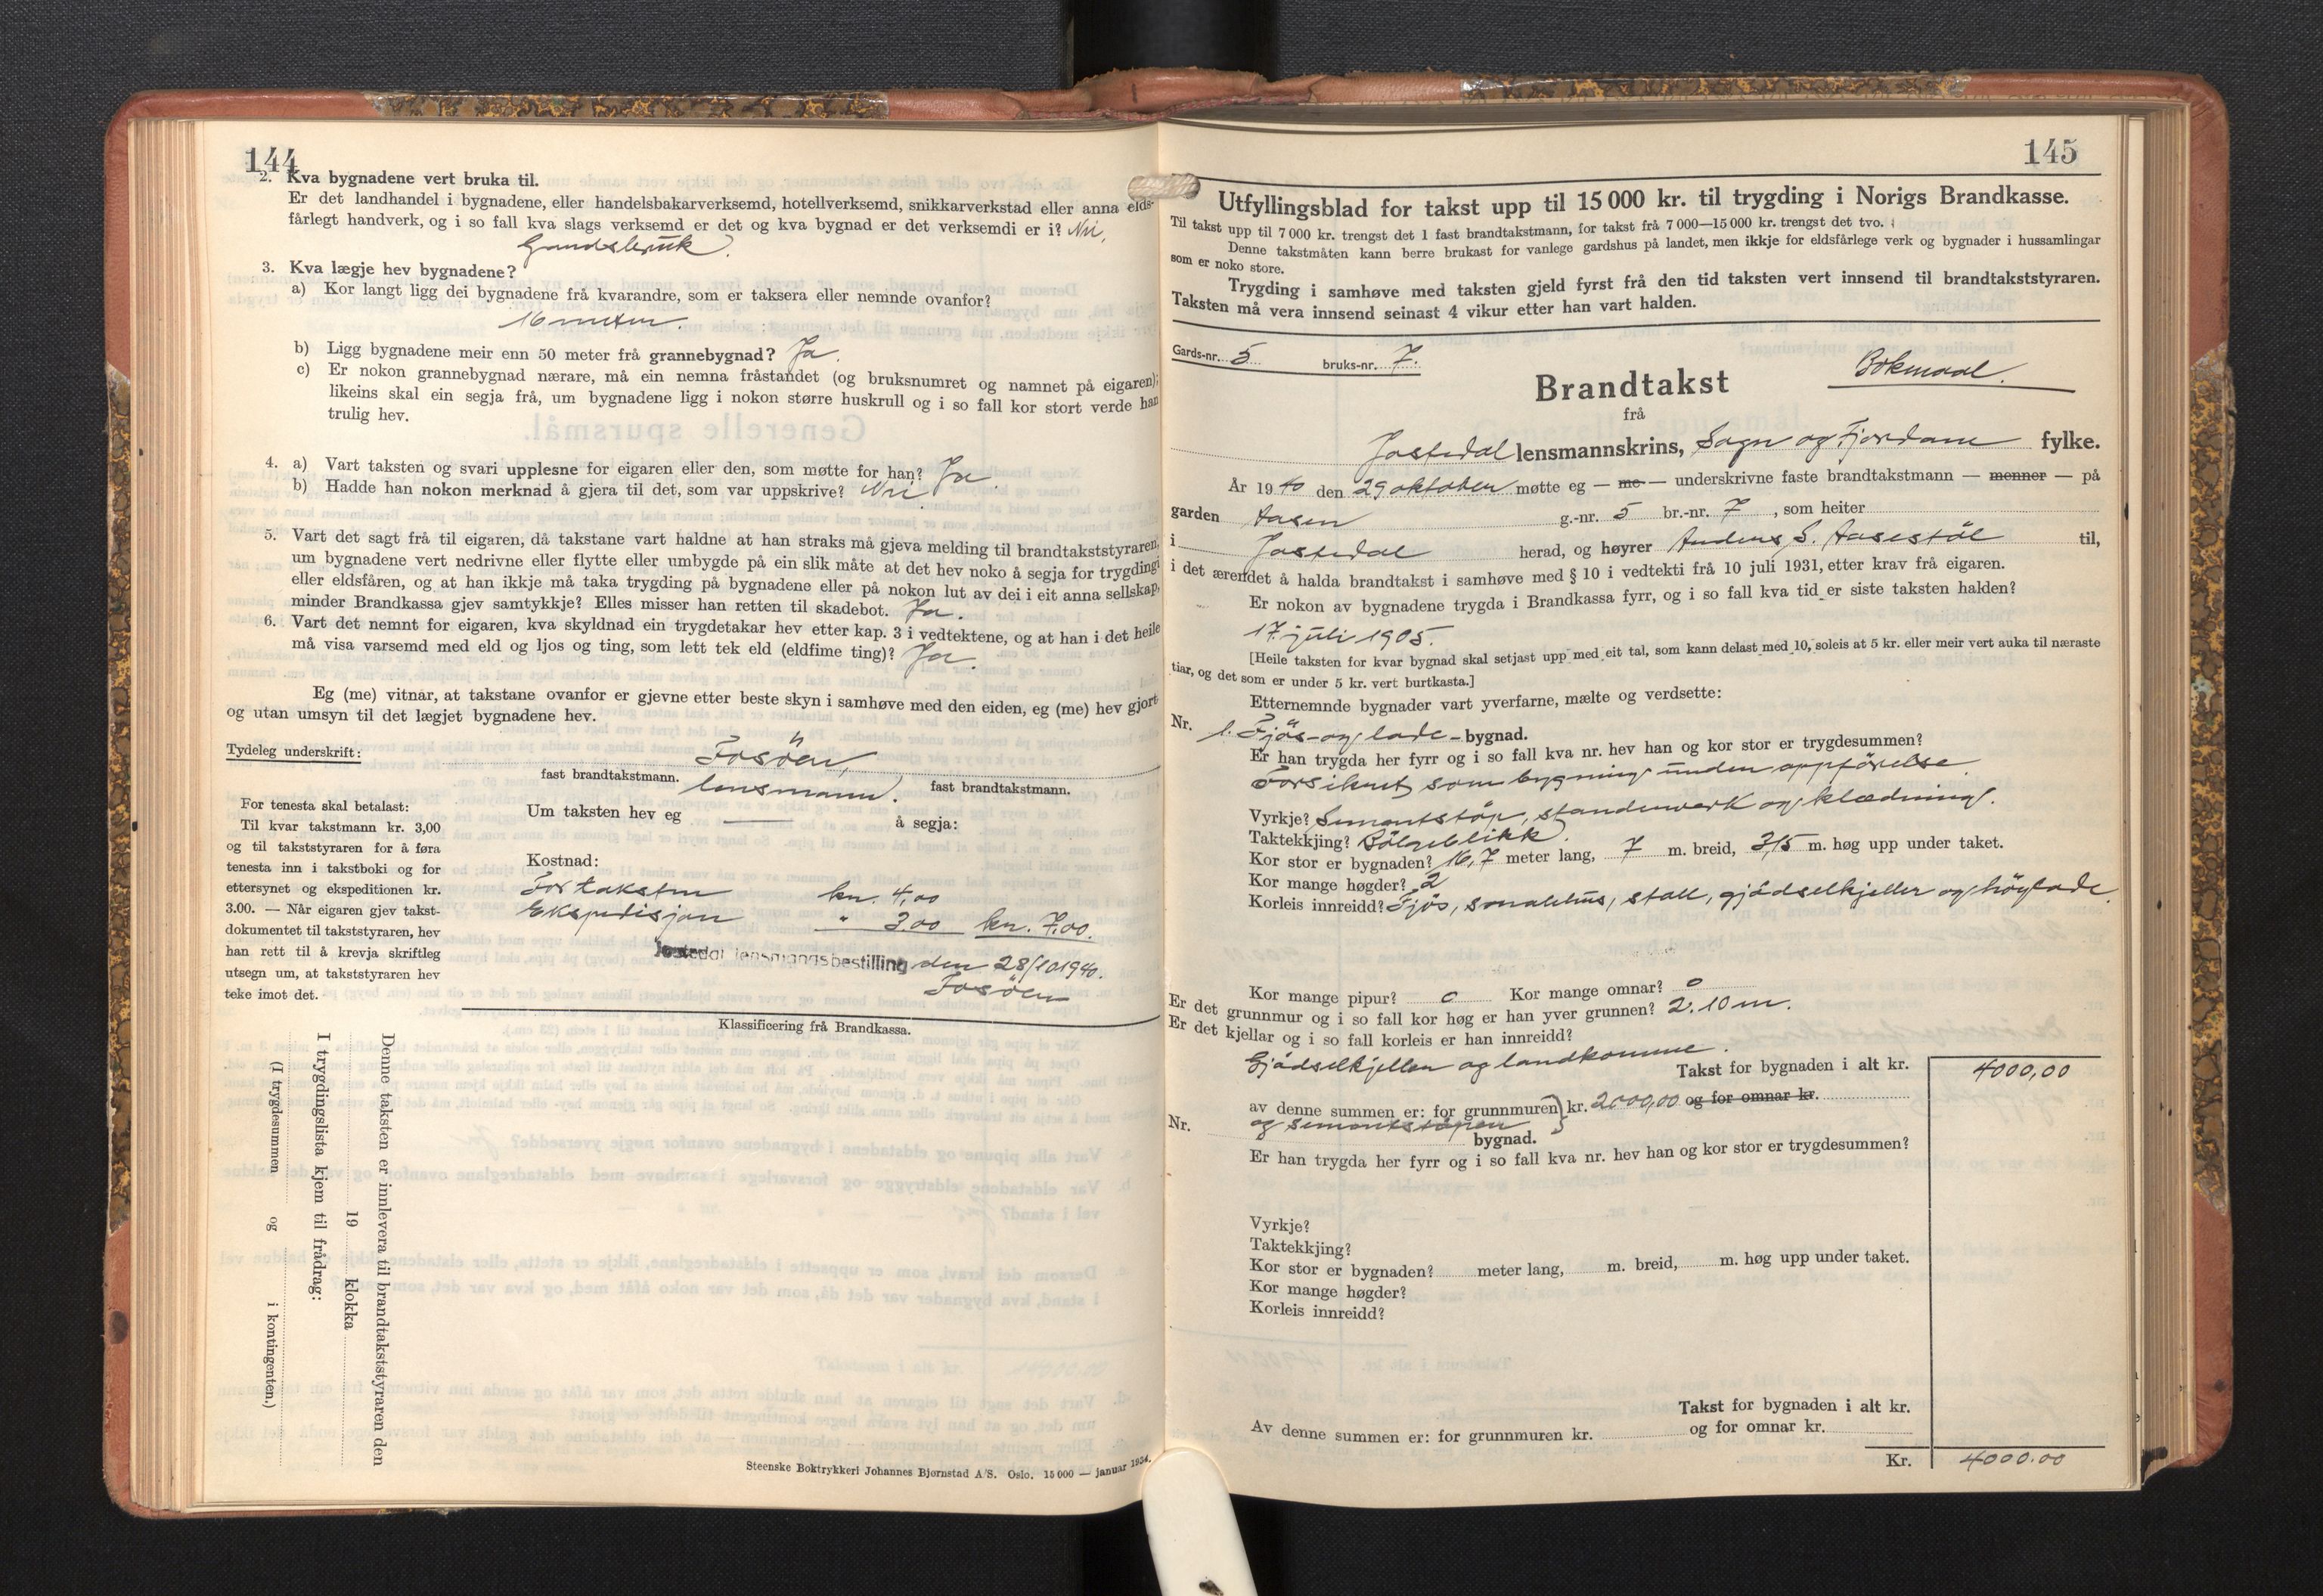 144
2. Kva bygnadene vert bruka til.
Er det landhandel i bygnadene, eller handelsbakarverksemd, hotellverksemd, snikkarverkstad eller anna elds-
fårlegt handverk, og i so fall kva slags verksemd er det og kva bygnad er det verksemdi er i? Nei,
Gaardsbruk.
3. Kva lægje hev bygnadene?
a) Kor langt ligg dei bygnadene frå kvarandre, som er taksera eller nemnde ovanfor?
16 meter.
b) Ligg bygnadene meir enn 50 meter frå grannebygnad? Ja.
c) Er nokon grannebygnad nærare, må ein nemna fråstandet (og bruksnumret og namnet på eigaren);
likeins skal ein segja frå, um bygnadene ligg i nokon større huskrull og i so fall kor stort verde han
trulig hev.
4. a) Vart taksten og svari upplesne for eigaren eller den, som møtte for han? Ja.
b) Hadde han nokon merknad å gjera til det, som var uppskrive? Nei
5. Vart det sagt frå til eigaren, då takstane vart haldne at han straks må gjeva melding til brandtakststyraren,
um bygnadene vert nedrivne eller flytte eller umbygde på ein slik måte at det hev noko å segja for trygdingi
eller eldsfåren, og at han ikkje må taka trygding på bygnadene eller på nokon lut av dei i eit anna sellskap,
minder Brandkassa gjev samtykkje? Elles misser han retten til skadebot. Ja.
6. Vart det nemnt for eigaren, kva skyldnad ein trygdetakar hev etter kap. 3 i vedtektene, og at han i det heile
må visa varsemd med eld og ljos og ting, som lett tek eld (eldfime ting)? Ja.
Eg (me) vitnar, at takstane ovanfor er gjevne etter beste skyn i samhøve med den eiden, eg (me) hev gjort
og utan umsyn til det lægjet bygnadene hev.
Tydeleg underskrift:
Fosøen,
fast brandtakstmann. lensmann. fast brandtakstmann.
For tenesta skal betalast:
Til kvar takstmann kr. 3,00
og til takststyraren for å føra
tenesta inn i takstboki og for
ettersynet og ekspeditionen kr.
3.00. — Når eigaren gjev takst-
dokumentet til takststyraren, hev
han rett til å krevja skriftleg
utsegn um, at takststyraren hev
teke imot det.
Um taksten hev eg — å segja:
Kostnad:
For taksten kr. 4,00
Ekspedisjon " 3.00 kr. 7.00.
Jostedal lensmannsbestilling den 28/10 1940.
Fosøen
Klassificering frå Brandkassa.
Denne taksten er innlevera til brandtakststyraren den
19 klokka
I trygdingslista kjem til frådrag:
(I trygdesummen og i kontingenten.)
Steenske Boktrykkeri Johannes Bjørnstad A/S. Oslo. 15 000 — januar 1934.
145
Utfyllingsblad for takst upp til 15 000 kr. til trygding i Norigs Brandkasse.
Til takst upp til 7 000 kr. trengst det 1 fast brandtakstmann, for takst frå 7 000—15 000 kr. trengst det tvo.
Denne takstmåten kann berre brukast for vanlege gardshus på landet, men ikkje for eldsfårlege verk og bygnader i hussamlingar
som er noko store.
Trygding i samhøve med taksten gjeld fyrst frå den tid taksten vert innsend til brandtakststyraren.
Taksten må vera innsend seinast 4 vikur etter han vart halden.
Gards-nr. 5 bruks-nr. 7.
Bokmaal.
Brandtakst
frå
Jostedal lensmannskrins, Sogn og Fjordane fylke.
År 1940 den 29 oktober møtte eg — me — underskrivne faste brandtakstmann — menner — på
garden Aasen g.-nr. 5 br.-nr. 7, som heiter
i Jostedal herad, og høyrer Anders S. Aasestöl til,
i det ærendet å halda brandtakst i samhøve med § 10 i vedtekti frå 10 juli 1931, etter krav frå eigaren.
Er nokon av bygnadene trygda i Brandkassa fyrr, og i so fall kva tid er siste taksten halden?
17. juli 1905.
[Heile taksten for kvar bygnad skal setjast upp med eit tal, som kann delast med 10, soleis at 5 kr. eller meir vert auka til næraste
tiar, og det som er under 5 kr. vert burtkasta.]
Etternemnde bygnader vart yverfarne, mælte og verdsette:
Nr. 1. Fjös- og lade- bygnad.
Er han trygda her fyrr og i so fall kva nr. hev han og kor stor er trygdesummen?
Forsikret som bygning under oppförelse.
Vyrkje? Sementstöp, standerverk og klædning.
Taktekkjing? Bölgeblikk.
Kor stor er bygnaden? 16,7 meter lang, 7 m. breid, 3,5 m. høg upp under taket.
Kor mange høgder? 2
Korleis innreidd? Fjös, smalehus, stall, gjödselkjeller og höylade.
Kor mange pipur? 0 Kor mange omnar? 0
Er det grunnmur og i so fall kor høg er han yver grunnen? 2.10 m.
Er det kjellar og i so fall korleis er han innreidd?
Gjödselkjeller og landkomme.
Takst for bygnaden i alt kr. 4000,00
av denne summen er: for grunnmuren kr. 2000,00 og for omnar kr.
og sementstöpen
Nr. bygnad.
Er han trygda her fyrr og i so fall kva nr. hev han og kor stor er trygdesummen?
Vyrkje?
Taktekkjing?
Kor stor er bygnaden? meter lang, m. breid, m. høg upp under taket.
Kor mange høgder?
Korleis innreidd?
Takst for bygnaden i alt kr.
Av denne summen er: for grunnmuren kr. og for omnar kr.
Kr. 4000.00